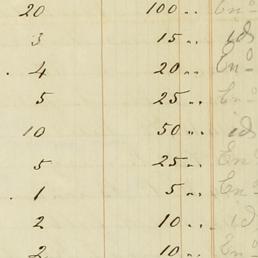 20 100 " " En.º
3 15 " " id
. 4 20 " " En.º
5 25 " " En.º
10 50 " " id
5 25 " " En.º
. 1 5 " " En.º
2 10 " " id
2 10 " " En.º